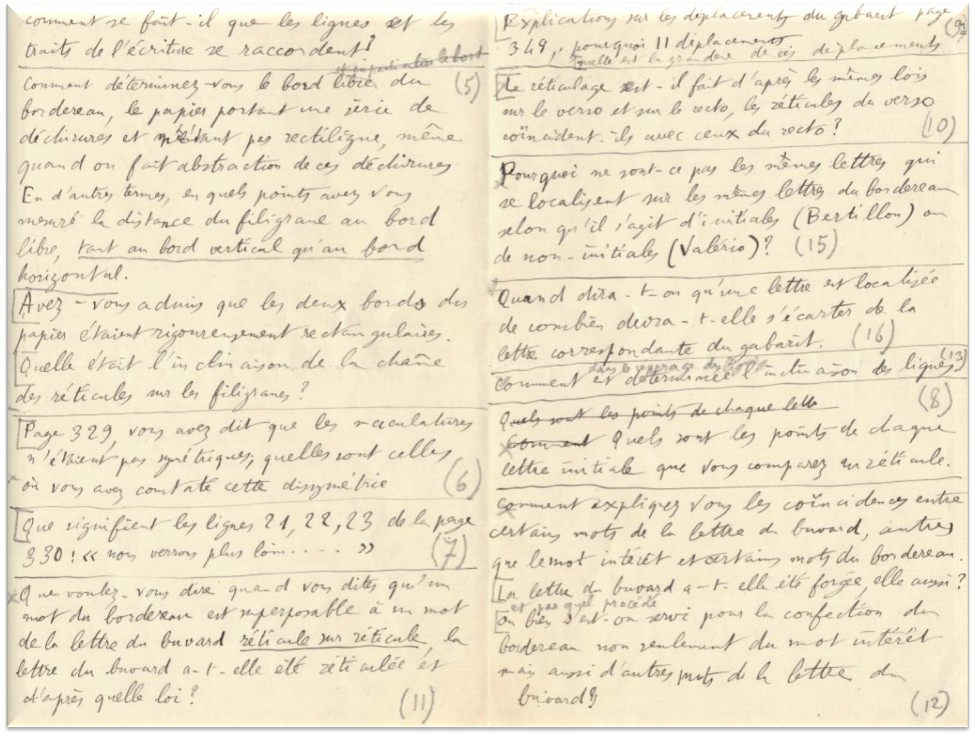 comment se fait-il que les lignes et les
traits de l'écriture se raccordent?
et en particulier le bord
Comment déterminez-vous le bord libre du (5)
bordereau, le papier portant une série de
déchirures et n'étant pas rectiligne, même
quand on fait abstraction de ces déchirures
En d'autres termes, en quels points avez vous
mesuré la distance du filigrane au bord
libre, tant au bord vertical qu'au bord
horizontal.
Avez-vous admis que les deux bords du
papier étaient rigoureusement rectangulaires.
Quelle était l'inclinaison de la chaîne
des réticules sur les filigranes?
Page 329, vous avez dit que les maculatures
n'étaient pas symétriques; quelles sont celles
où vous avez constaté cette dissymétrie (6)
Que signifient les lignes 21, 22, 23 de la page
330: « nous verrons plus loin..... » (7)
Que voulez-vous dire quand vous dites qu'un
mot du bordereau est superposable à un mot
de la lettre du buvard réticule sur réticule la
lettre du buvard a-t-elle été réticulée et
d'après quelle loi? (11)
Explications sur les déplacements du gabarit page (9)
349, pourquoi 11 déplacements
quelle est la grandeur de ces déplacements
Le réticulage est-il fait d'après les mêmes lois
sur le verso et sur le recto, les réticules du verso
coïncident-ils avec ceux du recto? (10)
Pourquoi ne sont-ce pas les mêmes lettres qui
se localisent sur les mêmes lettres du bordereau
selon qu'il s'agit d'initiales (Bertillon) ou
de non-initiales (Valério)? (15)
Quand dira-t-on qu'une lettre est localisée
de combien devra-t-elle s'écarter de la
lettre correspondante du gabarit. (16)
Comment est déterminée l'inclinaison des lignes (13)
Quels sont les points de chaque lettre (8)
Comment Quels sont les points de chaque
lettre initiale que vous comparez au réticule.
Comment expliquez vous les coïncidences entre
certains mots de la lettre du buvard, autres
que le mot intérêt et certains mots du bordereau.
La lettre du buvard a-t-elle été forgée, elle aussi?
et par quel procédé
ou bien s'est-on servi pour la confection du
bordereau non seulement du mot intérêt
mais aussi d'autres mots de la lettre du
buvard? (12)